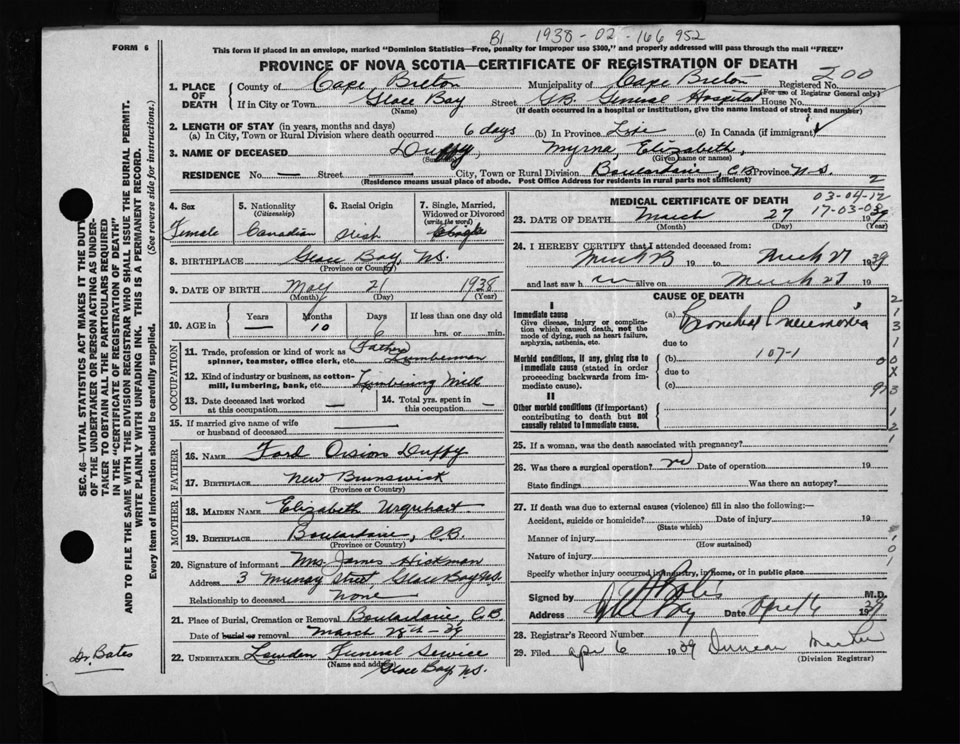 B1 1938-02-166952
FORM 6
This form if placed in an envelope, marked "Dominion Statistics—Free, penalty for improper use $300," and properly addressed will pass through the mail "FREE"
PROVINCE OF NOVA SCOTIA—CERTIFICATE OF REGISTRATION OF DEATH
200
1. PLACE OF DEATH County of Cape Breton Municipality of Cape Breton Registered No.
(For use of Registrar General only)
If in City or Town Glace Bay Street G.B. General Hospital House No.
(Name) (If death occurred in a hospital or institution, give the name instead of street and number)
2. LENGTH OF STAY (in years, months and days)
(a) In City, Town or Rural Division where death occurred 6 days (b) In Province Life (c) In Canada (if immigrant)
3. NAME OF DECEASED Duffy, Myrna, Elizabeth,
(Surname) (Given name or names)
RESIDENCE No. — Street — City, Town or Rural Division Boulardarie, C.B. Province N.S.
(Residence means usual place of abode. Post Office Address for residents in rural parts not sufficient) 2
4. Sex Female
5. Nationality (Citizenship) Canadian
6. Racial Origin Irish
7. Single, Married, Widowed or Divorced (write the word) Single
8. BIRTHPLACE Glace Bay N.S.
(Province or Country)
9. DATE OF BIRTH May 21 1938
(Month) (Day) (Year)
10. AGE in Years — Months 10 Days 6 If less than one day old hrs. or min.
OCCUPATION
11. Trade, profession or kind of work as spinner, teamster, office clerk, etc. Father Lumberman
12. Kind of industry or business, as cotton-mill, lumbering, bank, etc. Lumbering Mill
13. Date deceased last worked at this occupation —
14. Total yrs. spent in this occupation —
15. If married give name of wife or husband of deceased —
FATHER
16. NAME Ford Duffy
17. BIRTHPLACE New Brunswick
(Province or Country)
MOTHER
18. MAIDEN NAME Elizabeth Urquhart
19. BIRTHPLACE Boulardarie, C.B.
(Province or Country)
20. Signature of informant Mrs. James Hickman
Address 3 Murray Street, Glace Bay N.S.
Relationship to deceased None
21. Place of Burial, Cremation or Removal Boulardarie, C.B.
Date of burial or removal March 28th - 39
22. UNDERTAKER Lawden Funeral Service
(Name and address) Glace Bay, N.S.
MEDICAL CERTIFICATE OF DEATH
03-04-12
17-03-08
23. DATE OF DEATH March 27 1939
(Month) (Day) (Year)
24. I HEREBY CERTIFY that I attended deceased from:
March 23 19 to March 27 1939
and last saw h alive on March 27 19
CAUSE OF DEATH
I
Immediate cause
Give disease, injury or complication which caused death, not the mode of dying, such as heart failure, asphyxia, asthenia, etc.
(a) Bronchial Pneumonia
due to
Morbid conditions, if any, giving rise to immediate cause (stated in order proceeding backwards from immediate cause).
(b) 107-1
due to
(c)
II
Other morbid conditions (if important) contributing to death but not causally related to immediate cause.
25. If a woman, was the death associated with pregnancy?
26. Was there a surgical operation? no Date of operation 19
State findings Was there an autopsy?
27. If death was due to external causes (violence) fill in also the following:—
Accident, suicide or homicide? Date of injury 19
(State which)
Manner of injury
(How sustained)
Nature of injury
Specify whether injury occurred in industry, in home, or in public place
Signed by Bates M.D.
Address Date Apr 6 1939
28. Registrar's Record Number
29. Filed Apr 6 1939 Duncan
(Division Registrar)
SEC. 46—VITAL STATISTICS ACT MAKES IT THE DUTY
OF THE UNDERTAKER OR PERSON ACTING AS UNDER-
TAKER TO OBTAIN ALL THE PARTICULARS REQUIRED
IN THE "CERTIFICATE OF REGISTRATION OF DEATH"
AND TO FILE THE SAME WITH THE DIVISION REGISTRAR WHO SHALL ISSUE THE BURIAL PERMIT.
WRITE PLAINLY WITH UNFADING INK. THIS IS A PERMANENT RECORD.
Every item of information should be carefully supplied. (See reverse side for instructions.)
Dr. Bates